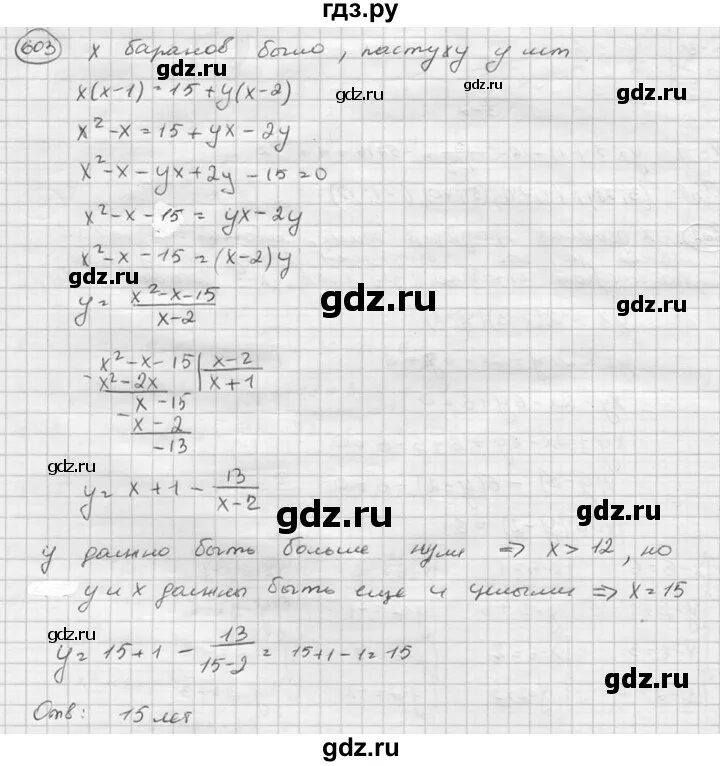 гдз.ру
603 x баранов было, пастуху y лет
gdz.ru
x(x-1) = 15 + y(x-2)
gdz.ru
gdz.ru
x² - x = 15 + yx - 2y
x² - x - yx + 2y - 15 = 0
gdz.ru
x² - x - 15 = yx - 2y
x² - x - 15 = (x-2)y
gdz.ru
gdz.ru
y = (x² - x - 15)/(x-2)
gdz.ru
gdz.ru
x² - x - 15 | x - 2
- x² - 2x | x + 1
x - 15
- x - 2
-13
gdz.ru
gdz.ru
gdz.ru
y = x + 1 - 13/(x-2)
gdz.ru
gdz.ru
y должно быть больше нуля ⇒ x > 12, но
y и x должны быть еще и целыми ⇒ x = 15
y = 15 + 1 - 13/(15-2) = 15 + 1 - 1 = 15
gdz.ru
gdz.ru
gdz.ru
Отв: 15 лет
gdz.ru
гдз.ру